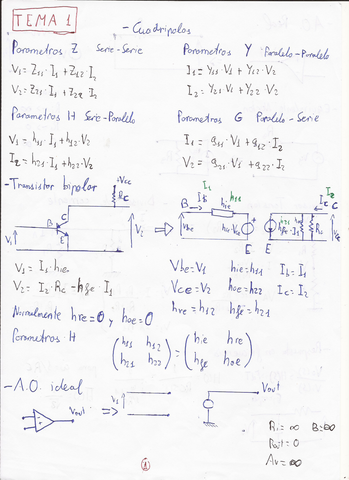 TEMA 1
- Cuadripolos
Parametros Z Serie-Serie
V₁ = Z₁₁·I₁ + Z₁₂·I₂
V₂ = Z₂₁·I₁ + Z₂₂·I₂
Parametros Y Paralelo-Paralelo
I₁ = Y₁₁·V₁ + Y₁₂·V₂
I₂ = Y₂₁·V₁ + Y₂₂·V₂
Parametros H Serie-Paralelo
V₁ = h₁₁·I₁ + h₁₂·V₂
I₂ = h₂₁·I₁ + h₂₂·V₂
Parametros G Paralelo-Serie
I₁ = g₁₁·V₁ + g₁₂·I₂
V₂ = g₂₁·V₁ + g₂₂·I₂
- Transistor bipolar
+Vcc
Rc
C
B
E
V₁
V₂
I₁
B
Ib
h₁₁
hie
Vbe
E
E
I₂
Ic
C
V₁ = I₁·hie
V₂ = I₂·Rc - hfe·I₁
Vbe = V₁ hie = h₁₁ Ib = I₁
Vce = V₂ hoe = h₂₂ Ic = I₂
hre = h₁₂ hfe = h₂₁
Normalmente hre = 0 y hoe = 0
Parametros H
(h₁₁ h₁₂) = (hie hre)
(h₂₁ h₂₂) (hfe hoe)
- A.O. ideal
Vout
=>
V₁
Vout
Ri = ∞ B = ∞
Rout = 0
Av = ∞
1